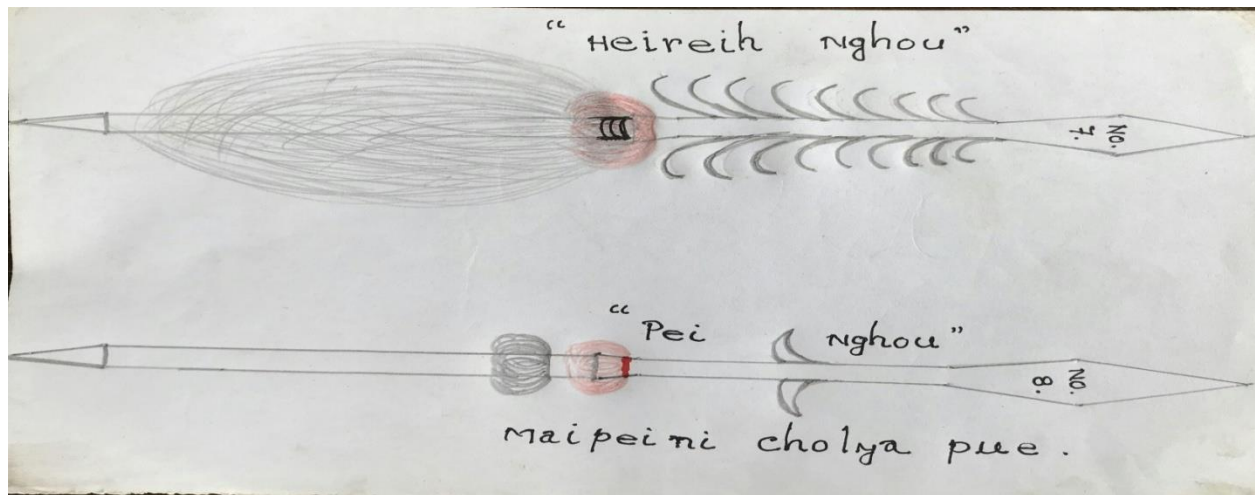 “Heireih Nghou”
No. 7.
“Pei Nghou”
No. 8.
Maipeini cholya pue.